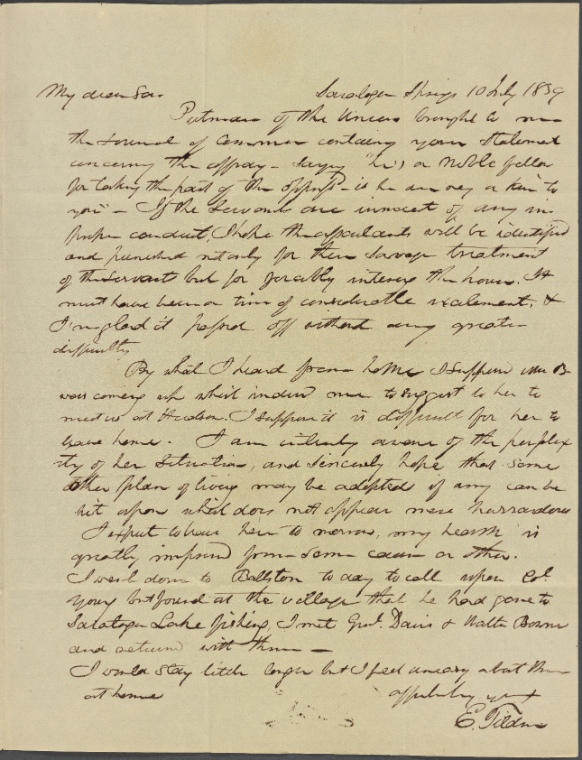 My dear Son. Saratoga Springs 10 July 1839
Putnam of the Union brought to me
the Journal of Commerce containing your statement
concerning the affray - Surely he is a noble fellow
for taking the part of the oppressed - is he any way a kin to
you" - If the Servants are innocent of any im
proper conduct, I hope the assailants will be identified
and punished not only for their savage treatment
of the Servant but for forcibly entering the house. It
must have been a time of considerable excitement, &
I'm glad it passed off without any greater
difficulty
By what I heard from home I suppose Mrs B.
was coming up which induced me to suggest to her to
meet us at Hudson. I suppose it is difficult for her to
leave home. I am entirely aware of the perplex
ity of her situation, and sincerely hope that some
other plan of living may be adopted if any can be
hit upon which does not appear more hazardous
I expect to leave here to morrow, my health is
greatly improved from some cause or other.
I went down to Ballston to day to call upon Col
Young but found at the village that he had gone to
Saratoga Lake fishing, I met Genl. Davis & Walter Bowne
and returned with them -
I would stay little longer but I feel uneasy about them
at home affectionately yours
E. Tilden